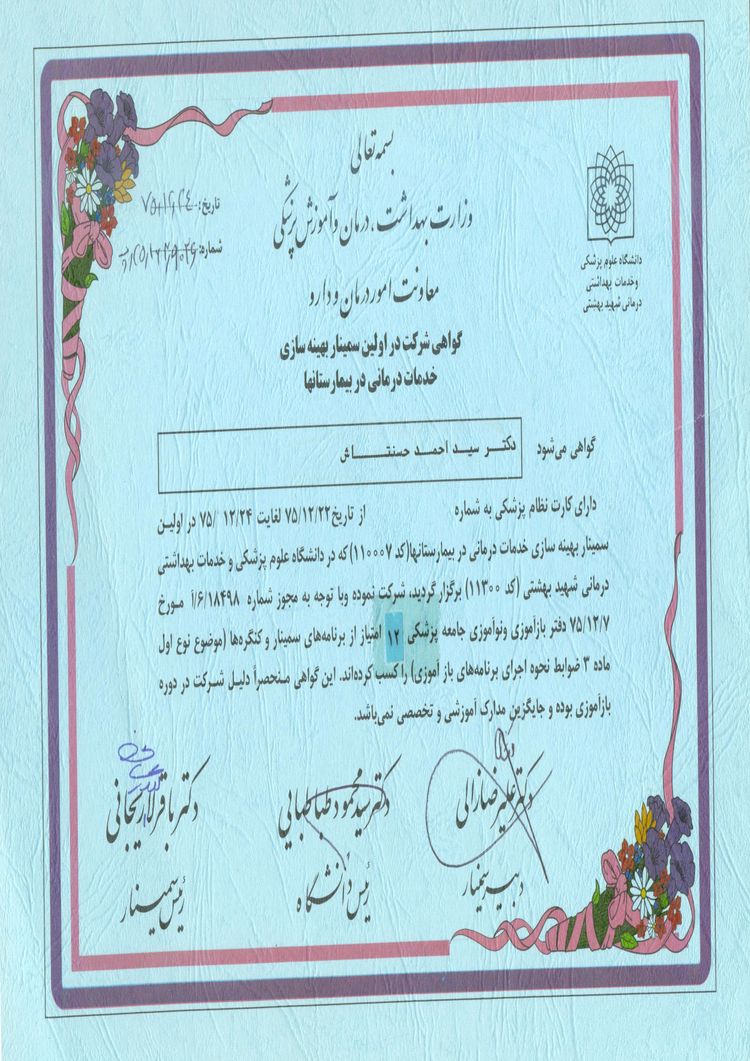 بسمه تعالی
وزارت بهداشت، درمان و آموزش پزشکی
معاونت امور درمان و دارو
دانشگاه علوم پزشکی
وخدمات بهداشتی
درمانی شهید بهشتی
تاریخ:
شماره:
گواهی شرکت در اولین سمینار بهینه سازی
خدمات درمانی در بیمارستانها
گواهی می‌شود دکتر سید احمد حسنتاش
دارای کارت نظام پزشکی به شماره از تاریخ ۷۵/۱۲/۲۲ لغایت ۱۲/۲۴ /۷۵ در اولین
سمینار بهینه سازی خدمات درمانی در بیمارستانها(کد ۱۱۰۰۰۷) که در دانشگاه علوم پزشکی و خدمات بهداشتی
درمانی شهید بهشتی (کد ۱۱۳۰۰) برگزار گردید، شرکت نموده وبا توجه به مجوز شماره ۱۸۴۹۸/۶/آ مورخ
۷۵/۱۲/۷ دفتر بازآموزی ونوآموزی جامعه پزشکی ۱۲ امتیاز از برنامه‌های سمینار و کنگره‌ها (موضوع نوع اول
ماده ۳ ضوابط نحوه اجرای برنامه‌های باز آموزی) را کسب کرده‌اند. این گواهی منحصراً دلیل شرکت در دوره
بازآموزی بوده و جایگزین مدارک آموزشی و تخصصی نمی‌باشد.
دکتر علیرضا زالی
دبیر سمینار
دکتر سید محمود طباطبایی
رئیس دانشگاه
دکتر باقر لاریجانی
رئیس سمینار